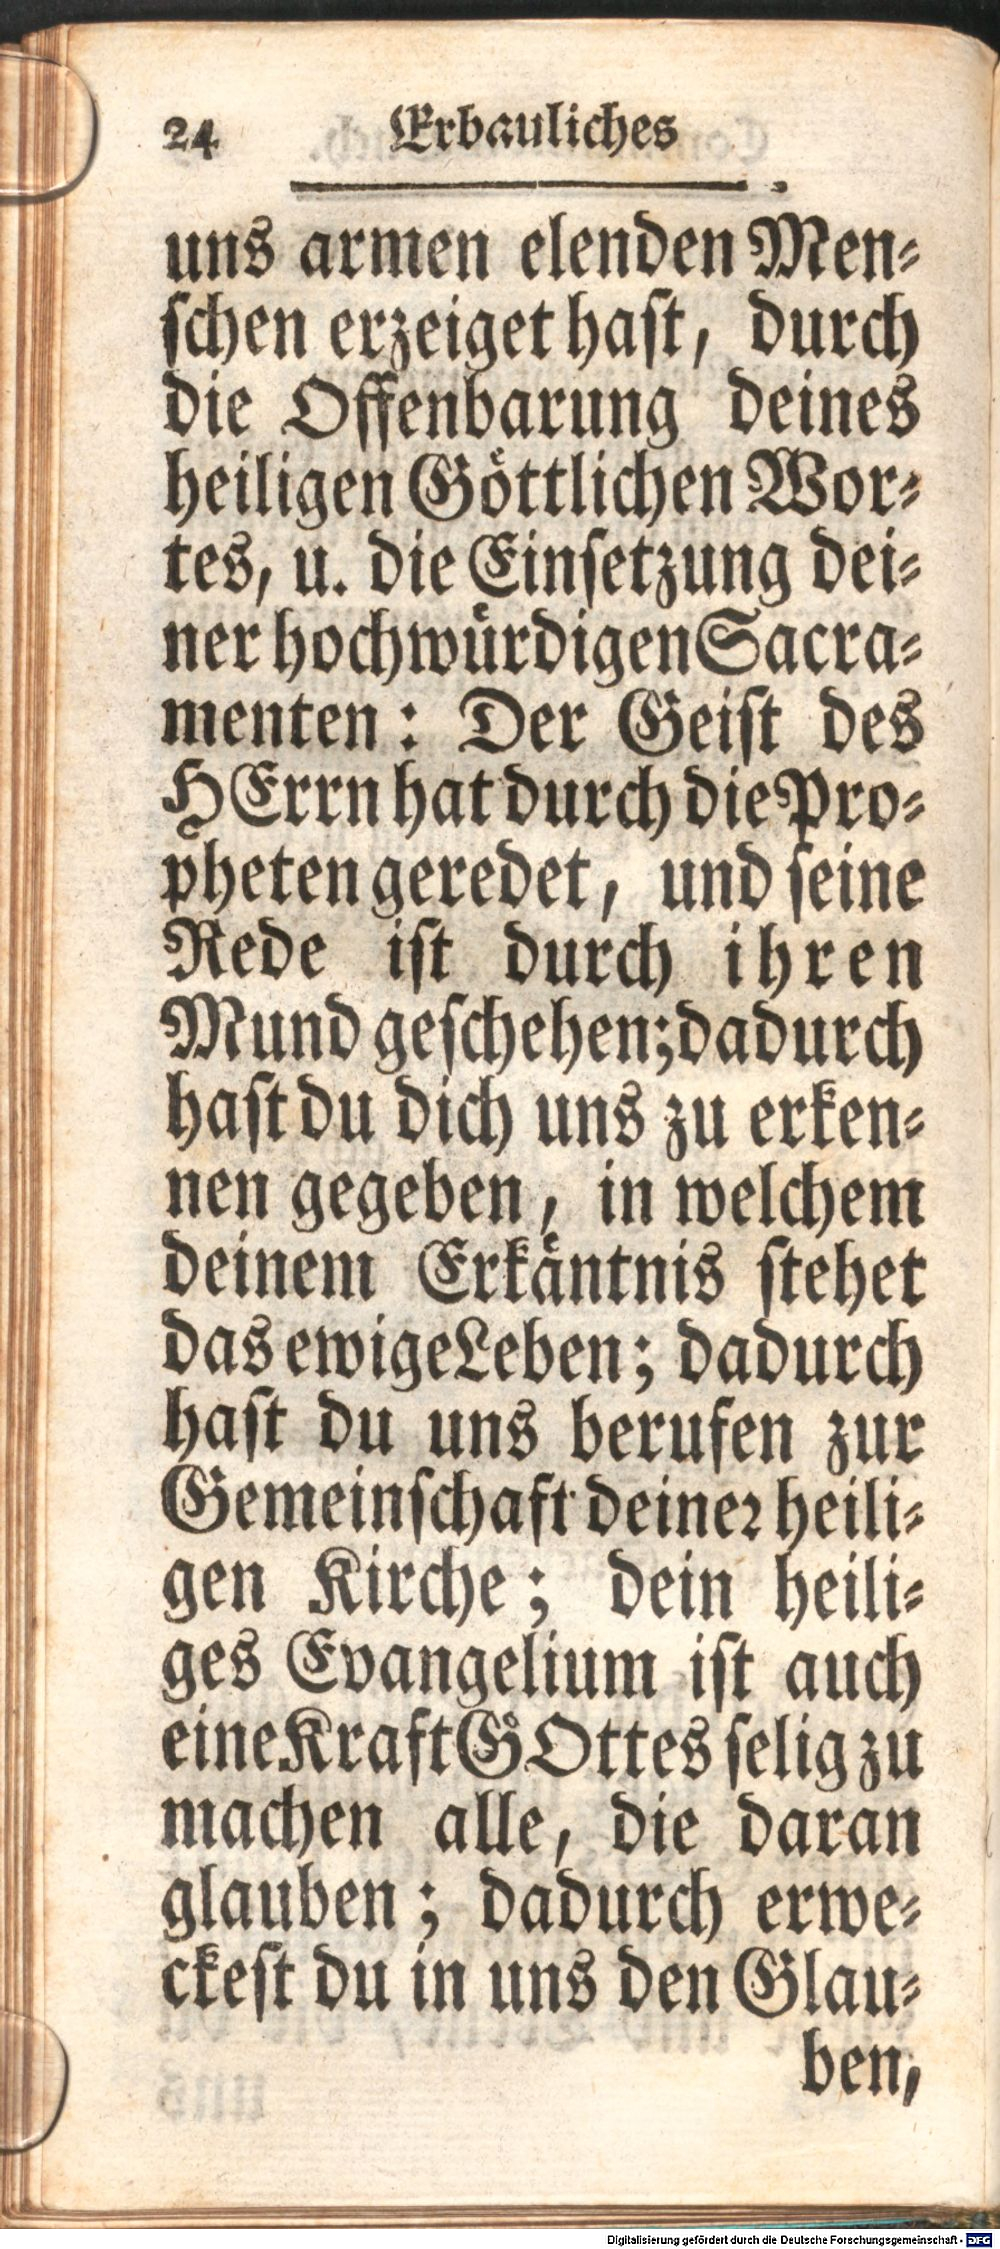 24 Erbauliches
uns armen elenden Men⸗
ſchen erzeiget haſt, durch
die Offenbarung deines
heiligen Goͤttlichen Wor⸗
tes, u. die Einſetzung dei⸗
ner hochwuͤrdigen Sacra⸗
menten: Der Geiſt des
HErrn hat durch die Pro⸗
pheten geredet, und ſeine
Rede iſt durch ihren
Mund geſchehen; dadurch
haſt du dich uns zu erken⸗
nen gegeben, in welchem
deinem Erkaͤntnis ſtehet
das ewige Leben; dadurch
haſt du uns berufen zur
Gemeinſchaft deineꝛ heili⸗
gen Kirche; dein heili⸗
ges Evangelium iſt auch
eine Kraft GOttes ſelig zu
machen alle, die daran
glauben; dadurch erwe⸗
ckeſt du in uns den Glau⸗
ben,
Digitalisierung gefördert durch die Deutsche Forschungsgemeinschaft - DFG